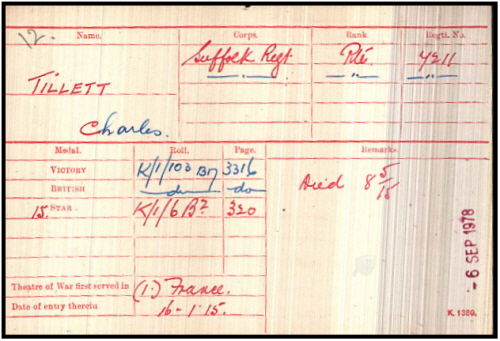 12.
Name. Corps. Rank Regtl. No.
Suffolk Regt Pte 4211
TILLETT — „ — — „ — — „ —
Charles.
Medal. Roll. Page. Remarks.
VICTORY K/1/103 B17 3316
BRITISH — do — — do — Died 8 5/15
15. STAR K/1/6 B2 320
Theatre of War first served in (1.) France.
Date of entry therein 16 - 1 - 15.
- 6 SEP 1978
K. 1380.